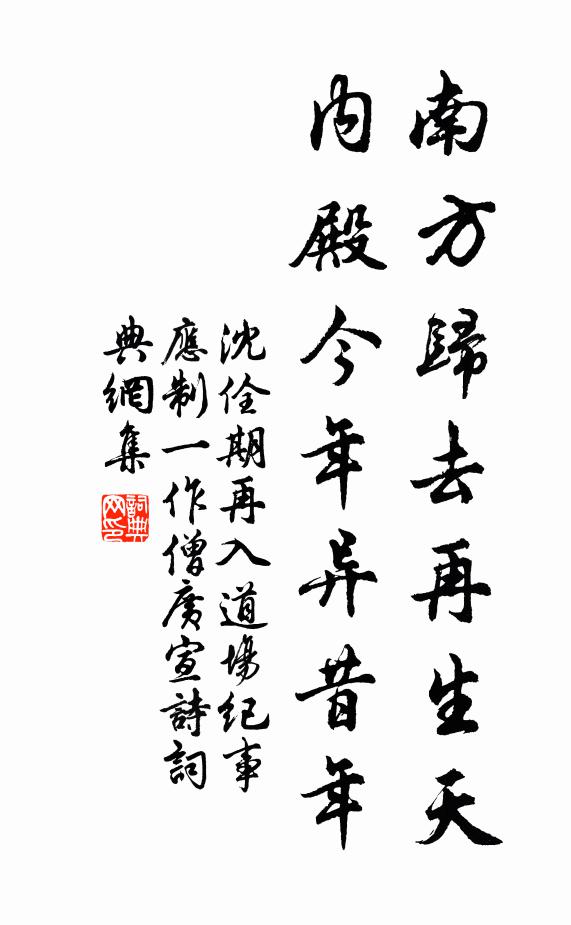 南方歸去再生天
內殿今年异昔年
沈佺期再入道場紀事
應制一作僧廣宣詩詞
典網集
詞典网印